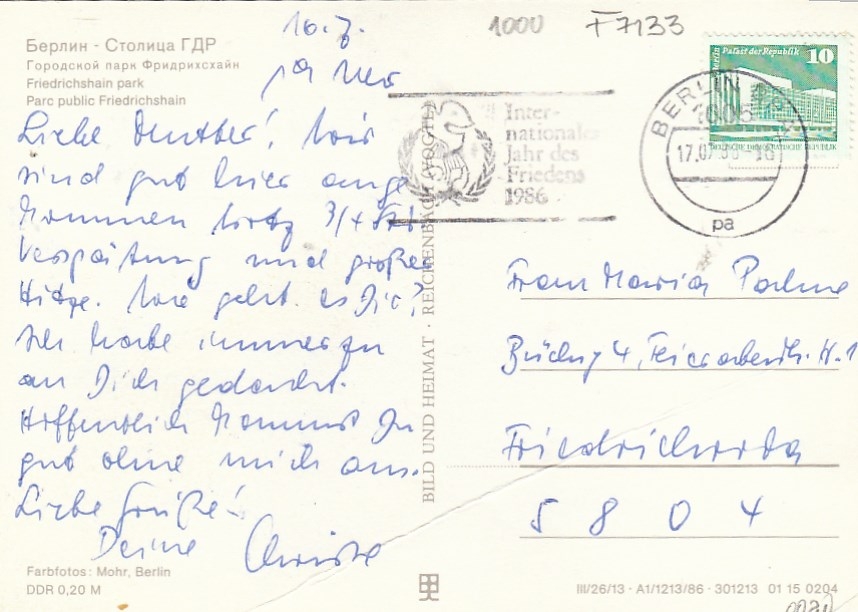 16.7.
1000
F7133
Берлин - Столица ГДР
Городской парк Фридрихсхайн
Friedrichshain park
Parc public Friedrichshain
Liebe Mutter! Wir
sind gut hier ange
kommen trotz 3/4 Std
Verspätung und großer
Hitze. Wie geht es Dir?
Ich habe immerzu
an Dich gedacht.
Hoffentlich kommst Du
gut ohne mich aus.
Liebe Grüße!
Deine Christa
Farbfotos: Mohr, Berlin
DDR 0,20 M
BILD UND HEIMAT · REICHENBACH (VOGTL)
Inter-
nationales
Jahr des
Friedens
1986
BERLIN
17.07.86
pa
Berlin Palast der Republik 10
DEUTSCHE DEMOKRATISCHE REPUBLIK
Frau Maria
4, Feierabendh. H. 1
Friedrichroda
5804
III/26/13 · A1/1213/86 · 301213 01 15 0204